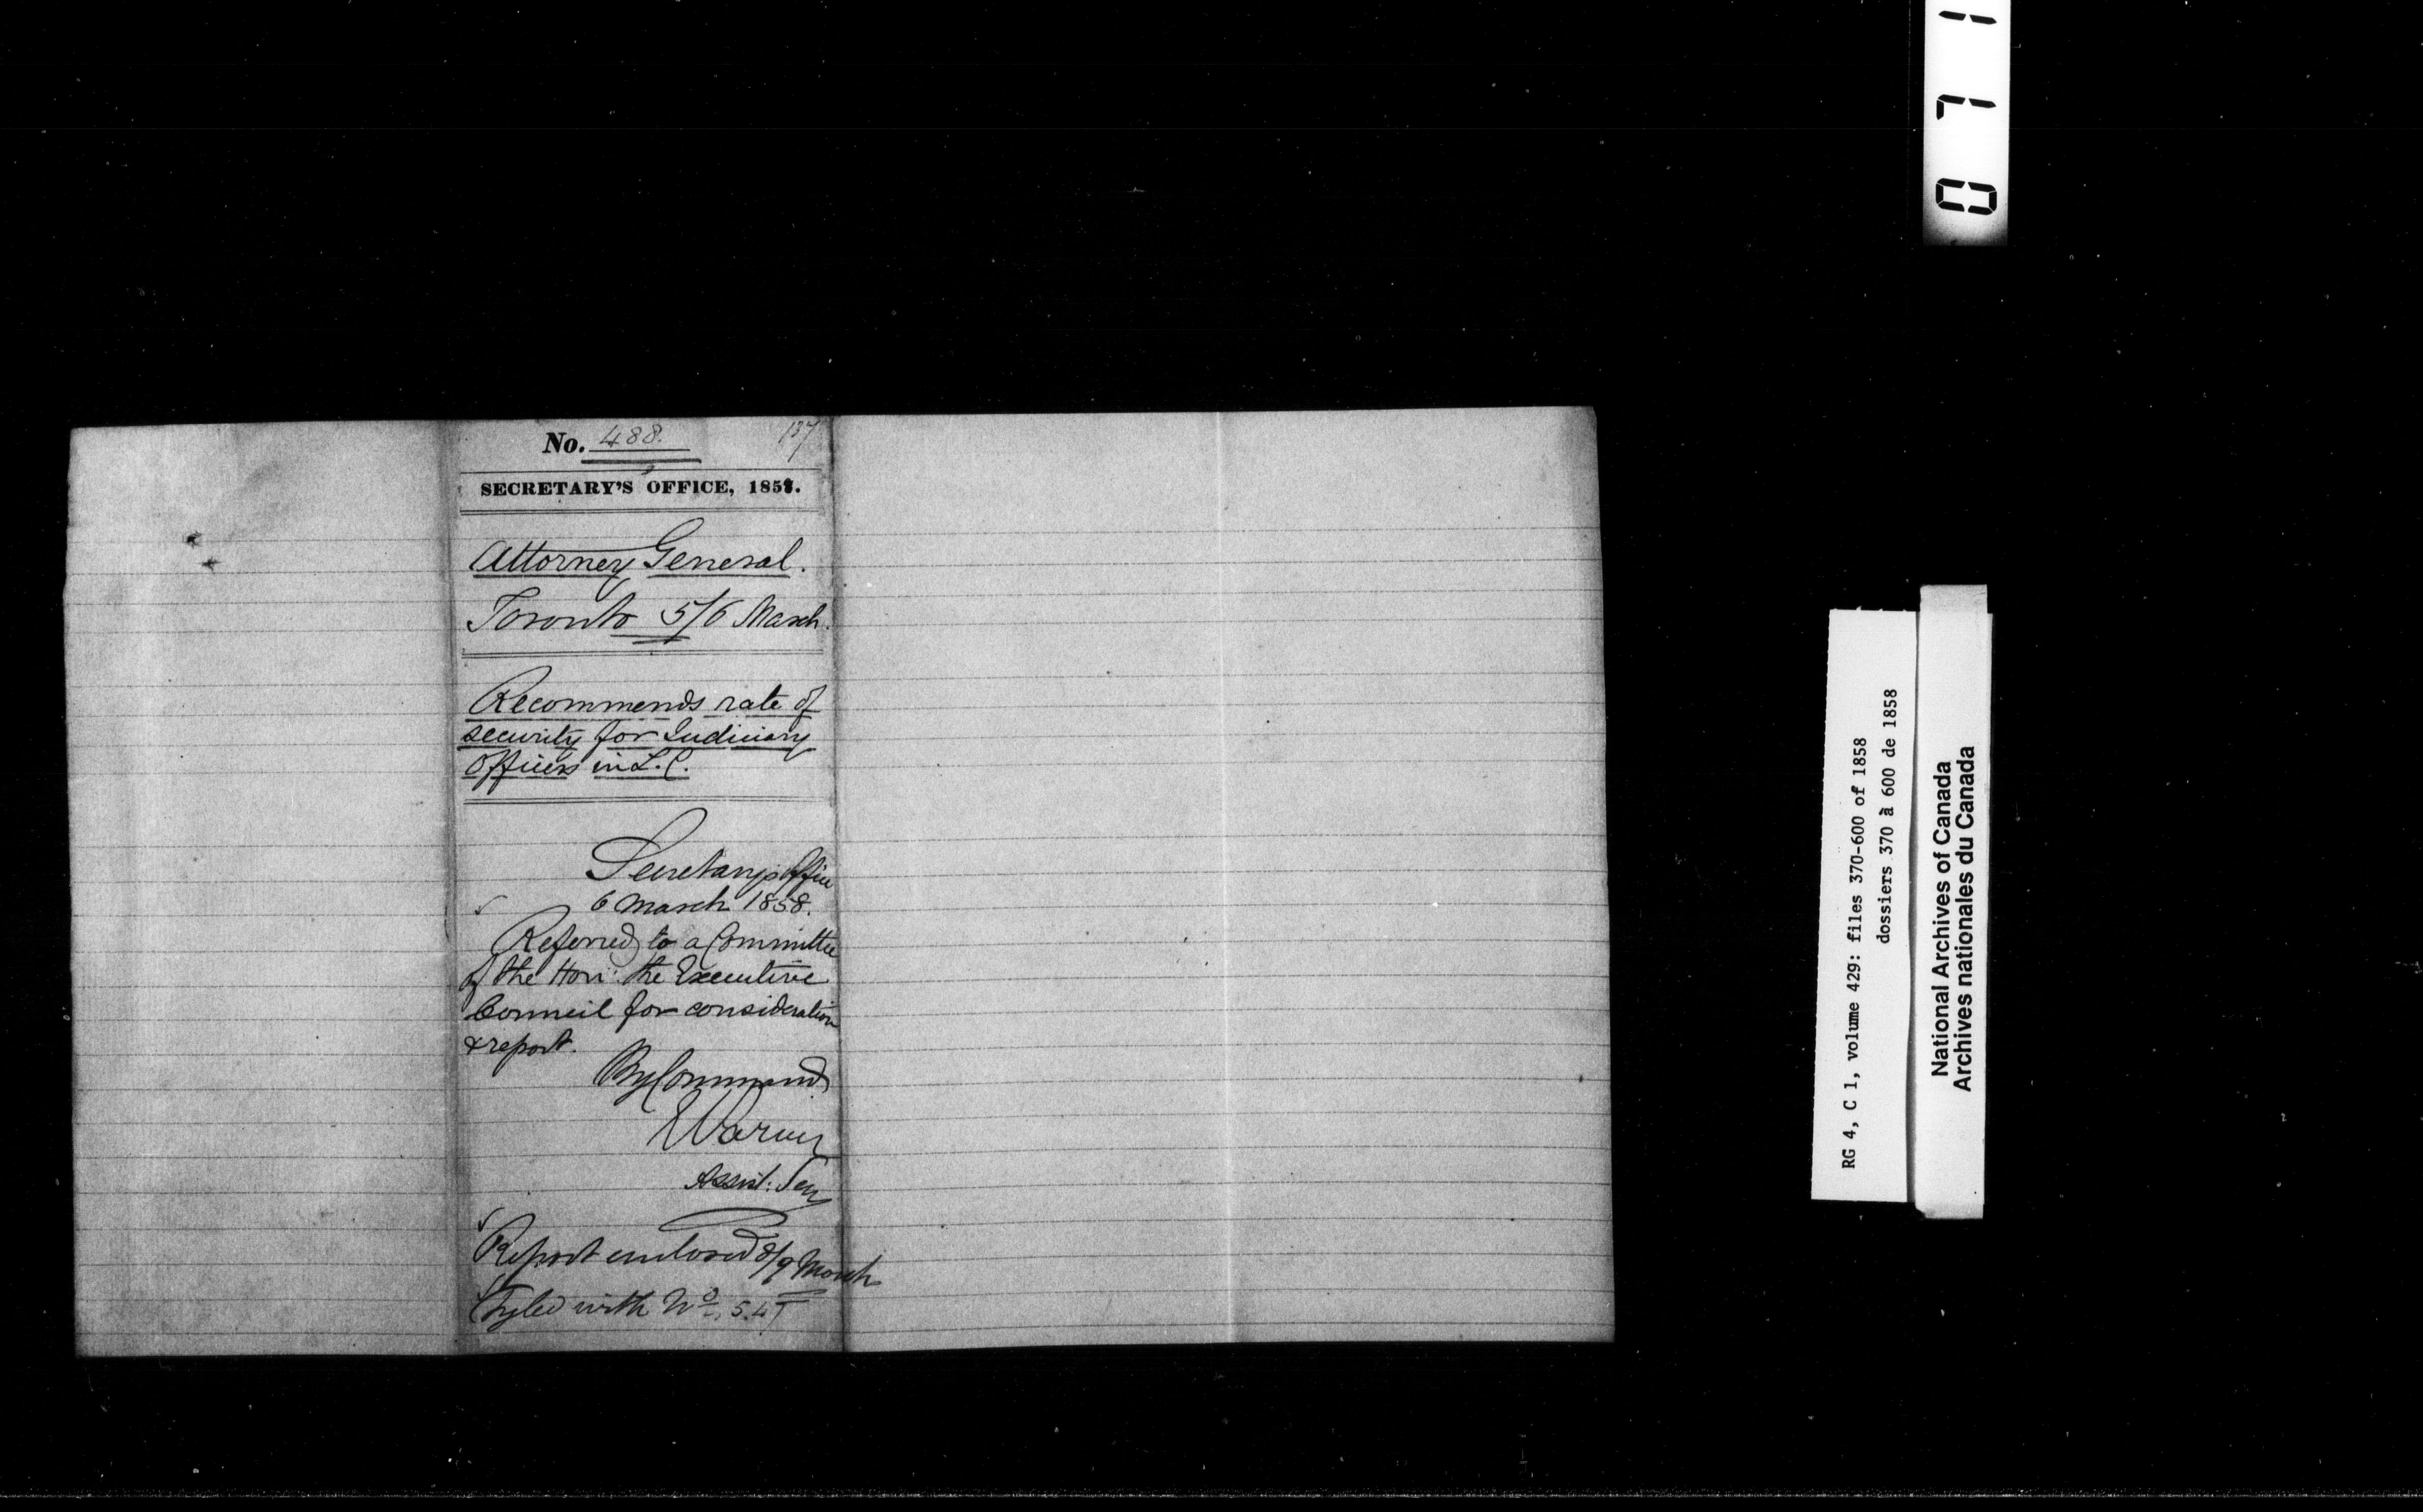 No. 488. 137
SECRETARY'S OFFICE, 1858.
Attorney General.
Toronto 5/6 March.
Recommends rate of
security for Judiciary
Officers in L.C.
Secretary's Office
6 March 1858.
Referred to a Committee
of the Hon: the Executive
Council for consideration
& report.
By Command
Assist: Secy
Report enclosed 8/9 March
Fyled with No. 547
0 7 1
RG 4, C 1, volume 429: files 370-600 of 1858
dossiers 370 à 600 de 1858
National Archives of Canada
Archives nationales du Canada